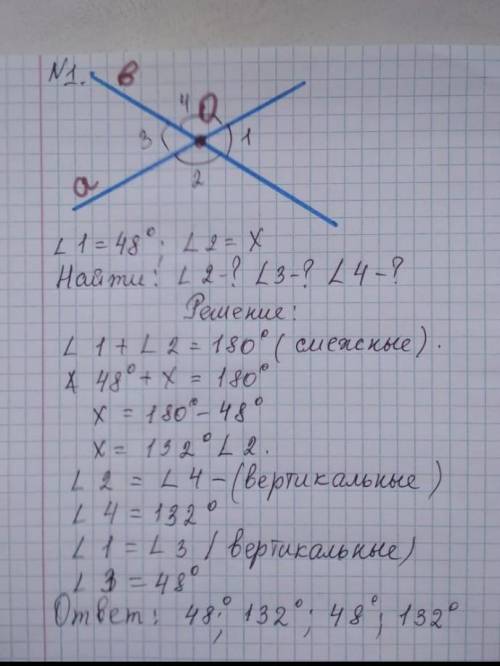 №1.
в
4 О
3 1
2
а
∠1=48°; ∠2=х
Найти: ∠2-? ∠3-? ∠4-?
Решение:
∠1+∠2=180° (смежные).
48°+х=180°
х=180°-48°
х=132° ∠2.
∠2=∠4-(вертикальные)
∠4=132°
∠1=∠3 (вертикальные)
∠3=48°
Ответ: 48°; 132°; 48°; 132°